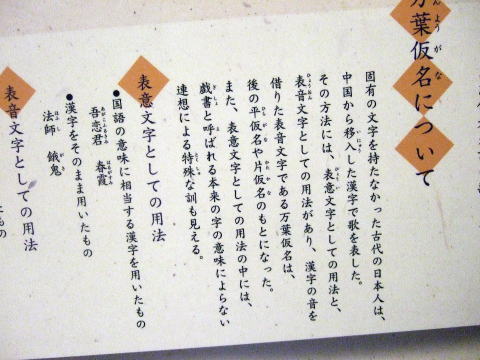 万葉仮名について
固有の文字を持たなかった古代の日本人は、
中国から移入した漢字で歌を表した。
その方法には、表意文字としての用法と、
表音文字としての用法があり、漢字の音を
借りた表音文字である万葉仮名は、
後の平仮名や片仮名のもとになった。
また、表意文字としての用法の中には、
戯書と呼ばれる本来の字の意味によらない
連想による特殊な訓も見える。
表意文字としての用法
●国語の意味に相当する漢字を用いたもの
吾恋君 春霞
●漢字をそのまま用いたもの
法師 餓鬼
表音文字としての用法